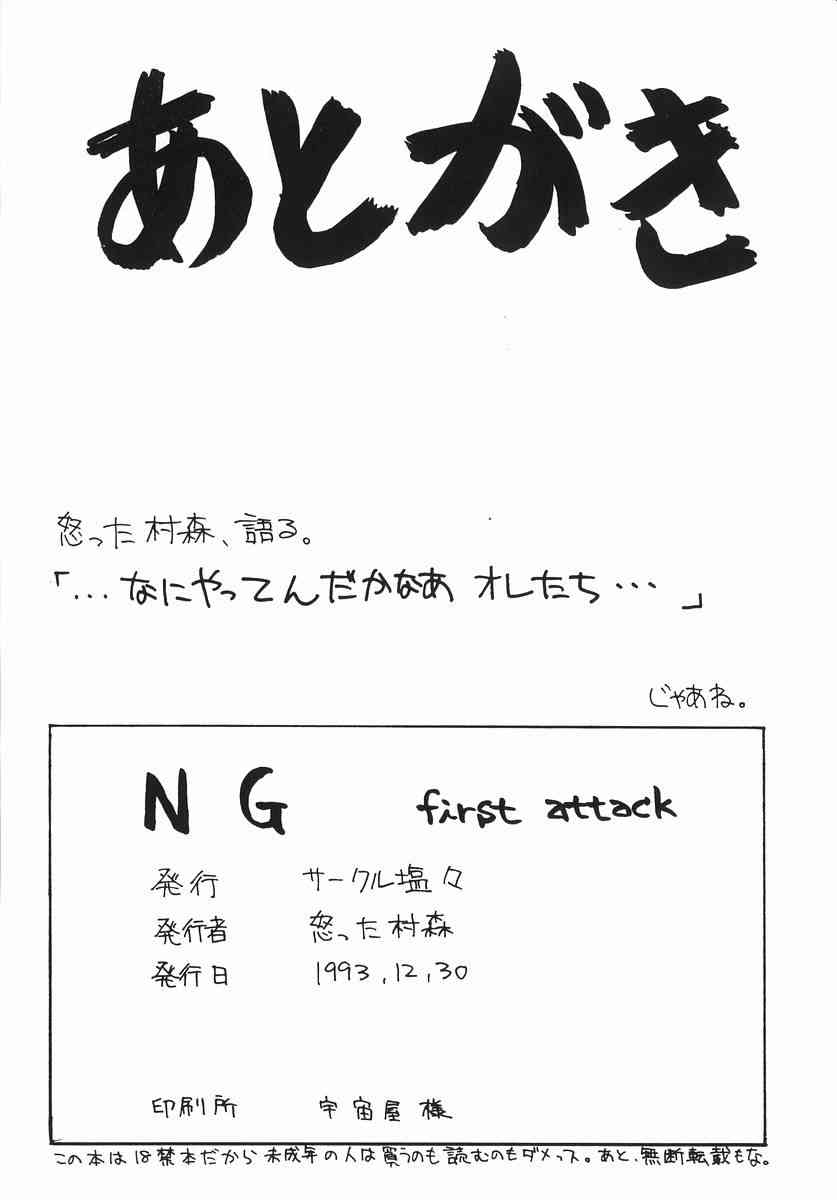 あとがき
怒った村森、語る。
「...なにやってんだかなあ オレたち...」
じゃあね。
NG first attack
発行 サークル塩々
発行者 怒った村森
発行日 1993.12.30
印刷所 宇宙屋様
この本は18禁本だから未成年の人は買うのも読むのもダメっス。あと、無断転載もな。